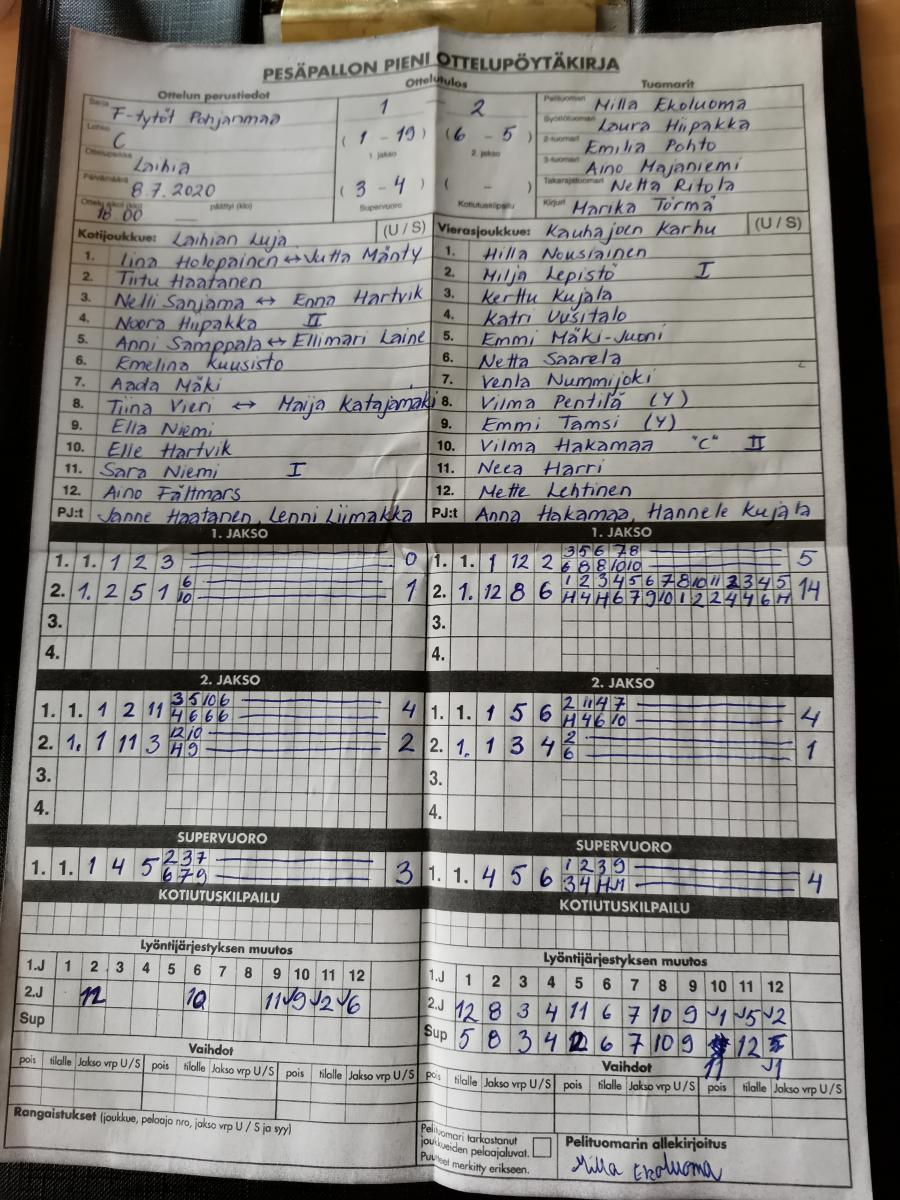 PESÄPALLON PIENI OTTELUPÖYTÄKIRJA
Ottelun perustiedot
Ottelutulos
Tuomarit
Sarja F-tytöt Pohjanmaa
1 — 2
Pelituomari Milla Ekoluoma
Lohko C
(1 - 19) (6 - 5)
1. jakso 2. jakso
Syöttötuomari Laura Hiipakka
2-tuomari Emilia Pohto
Ottelupaikka Laihia
3-tuomari Aino Majaniemi
Päivämäärä 8.7.2020
(3 - 4) ( - )
Supervuoro Kotiutuskilpailu
Takarajatuomari Netta Ritola
Ottelu alkoi (klo) 18.00 päättyi (klo)
Kirjuri Marika Törmä
Kotijoukkue: Laihian Luja (U / S)
Vierasjoukkue: Kauhajoen Karhu (U / S)
1. Iina Holopainen ↔ Jutta Mänty
1. Hilla Nousiainen
2. Tiitu Haatanen
2. Milja Lepistö I
3. Nelli Sanjama ↔ Enna Hartvik
3. Kerttu Kujala
4. Noora Hiipakka II
4. Katri Uusitalo
5. Anni Samppala ↔ Ellimari Laine
5. Emmi Mäki-Juoni
6. Emelina Kuusisto
6. Netta Saarela
7. Aada Mäki
7. Venla Nummijoki
8. Tiina Vieri ↔ Maija Katajamäki
8. Vilma Pentilä (Y)
9. Ella Niemi
9. Emmi Tamsi (Y)
10. Elle Hartvik
10. Vilma Hakamaa "C" II
11. Sara Niemi I
11. Neea Harri
12. Aino Fältmars
12. Mette Lehtinen
PJ:t Janne Haatanen, Lenni Liimakka
PJ:t Anna Hakamaa, Hannele Kujala
1. JAKSO
1. JAKSO
1. 1. 1 2 3 0
1. 1. 1 12 2 3 5 6 7 8 5
6 8 8 10 10
2. 1. 2 5 1 6 1
10
2. 1. 12 8 6 1 2 3 4 5 6 7 8 10 11 2 3 4 5 14
H 4 H 6 7 9 10 1 2 2 4 4 6 H
3.
3.
4.
4.
2. JAKSO
2. JAKSO
1. 1. 1 2 11 3 5 10 6 4
4 6 6 6
1. 1. 1 5 6 2 11 4 7 4
H 4 6 10
2. 1. 1 11 3 12 10 2
H 9
2. 1. 1 3 4 2 1
6
3.
3.
4.
4.
SUPERVUORO
SUPERVUORO
1. 1. 1 4 5 2 3 7 3
6 7 9
1. 1. 4 5 6 1 2 3 9 4
3 4 H H
KOTIUTUSKILPAILU
KOTIUTUSKILPAILU
Lyöntijärjestyksen muutos
Lyöntijärjestyksen muutos
1.J 1 2 3 4 5 6 7 8 9 10 11 12
1.J 1 2 3 4 5 6 7 8 9 10 11 12
2.J 12 10 11 J9 J2 J6
2.J 12 8 3 4 11 6 7 10 9 J1 J5 J2
Sup
Sup 5 8 3 4 2 6 7 10 9 12
11 J1
Vaihdot
Vaihdot
pois tilalle Jakso vrp U / S pois tilalle Jakso vrp U / S pois tilalle Jakso vrp U / S
pois tilalle Jakso vrp U / S pois tilalle Jakso vrp U / S pois tilalle Jakso vrp U / S
Rangaistukset (joukkue, pelaaja nro, jakso vrp U / S ja syy)
Pelituomari tarkastanut joukkueiden pelaajaluvat.
Puutteet merkitty erikseen.
Pelituomarin allekirjoitus
Milla Ekoluoma